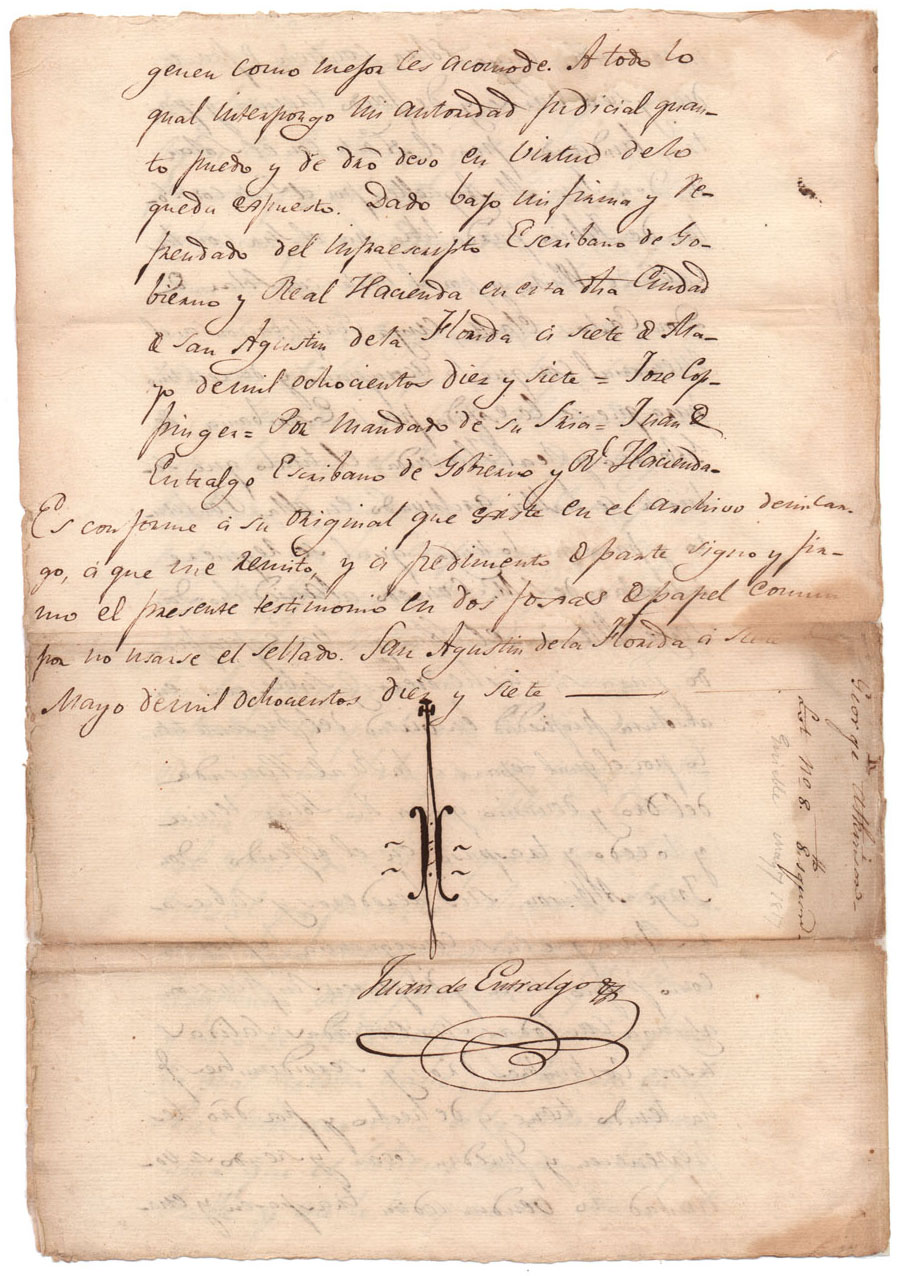 genen como mejor les acomode. A todo lo
qual interpongo mi autoridad judicial quan-
to puedo y de dro devo en virtud de lo
queda espuesto. Dado bajo mi firma y re-
frendado del infraescripto Escribano de Go-
bierno y Real Hacienda en esta dha Ciudad
de San Agustin de la Florida á siete de Ma-
yo de mil ochocientos diez y siete = Jose Cop-
pinger = Por mandado de su Sria = Juan de
Entralgo Escribano de Gobierno y Rl. Hacienda-
Es conforme á su original que existe en el archivo de mi car-
go, á que me remito, y á pedimento de parte signo y fir-
mo el presente testimonio en dos foxas de papel comun
por no usarse el sellado. San Agustin de la Florida á
Mayo de mil ochocientos diez y siete
Juan de Entralgo
George Atkinson
Lot No 8. 8th Square